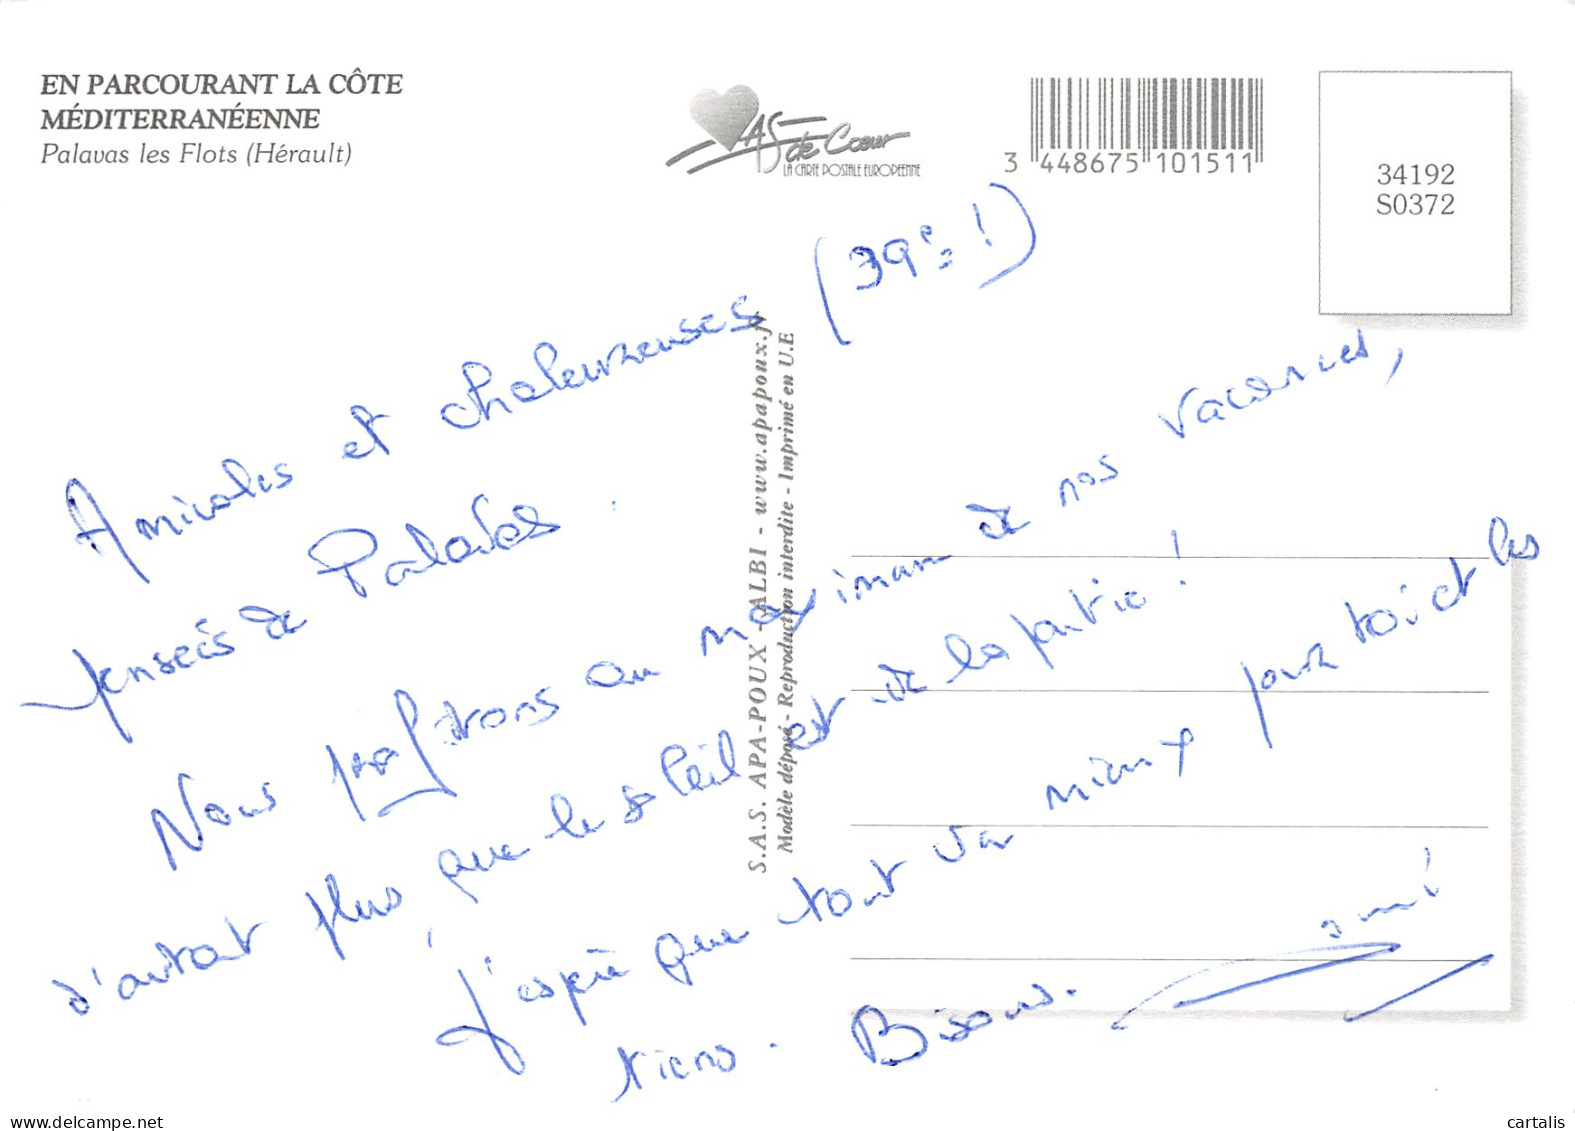 EN PARCOURANT LA CÔTE
MÉDITERRANÉENNE
Palavas les Flots (Hérault)
AS de Cœur
LA CARTE POSTALE EUROPEENNE
3 448675 101511
34192
S0372
S.A.S. APA-POUX - ALBI - www.apapoux.fr
Modèle déposé - Reproduction interdite - Imprimé en U.E
Amicales et chaleureuses (39° !)
pensées de Palavas.
Nous profitons au maximum de nos vacances,
d'autant plus que le soleil est de la partie !
J'espère que tout va mieux pour toi et les
tiens. Bisous.